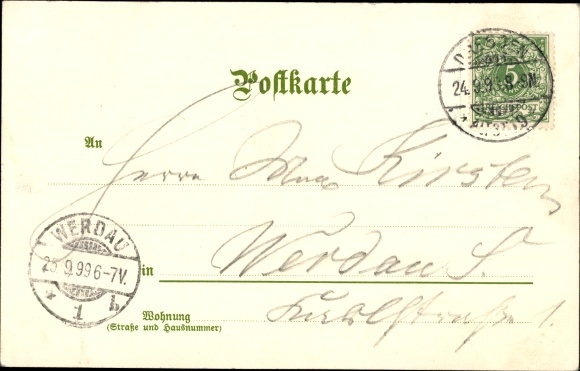 DRESDEN
24.9.99. 8-9N.
5
REICHSPOST
Postkarte
An
Herrn Max Kirsten,
WERDAU
25.9.99 6-7V.
* 1 b
in Werdau S.
Wohnung
(Straße und Hausnummer)
Karlstraße 1.